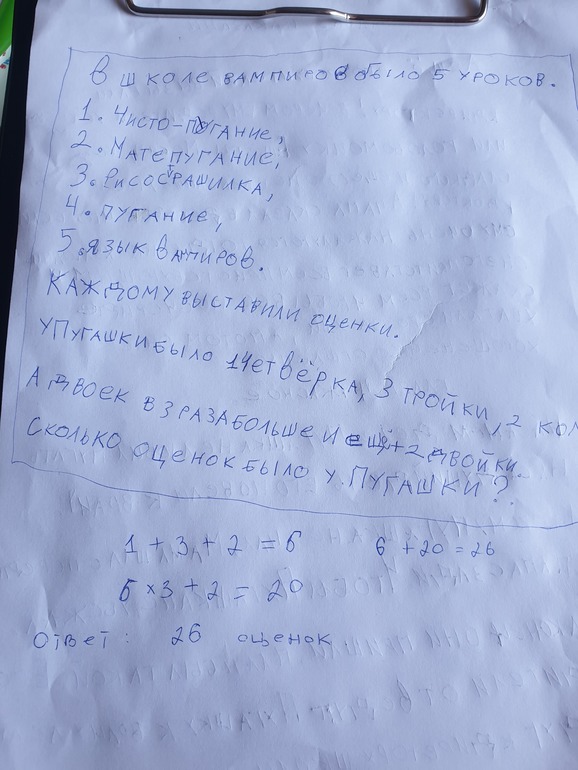 В ШКОЛЕ ВАМПИРОВ БЫЛО 5 УРОКОВ.
1. ЧИСТО-ПУГАНИЕ,
2. МАТЕПУГАНИЕ,
3. РИСОСТРАШИЛКА,
4. ПУГАНИЕ,
5. ЯЗЫК ВАМПИРОВ.
КАЖДОМУ ВЫСТАВИЛИ ОЦЕНКИ.
У ПУГАШКИ БЫЛО 1 ЧЕТВЁРКА, 3 ТРОЙКИ, 2 КОЛ
А ДВОЕК В 3 РАЗА БОЛЬШЕ И ЕЩЁ + 2 ДВОЙКИ.
СКОЛЬКО ОЦЕНОК БЫЛО У ПУГАШКИ?
1 + 3 + 2 = 6 6 + 20 = 26
6 × 3 + 2 = 20
Ответ: 26 оценок